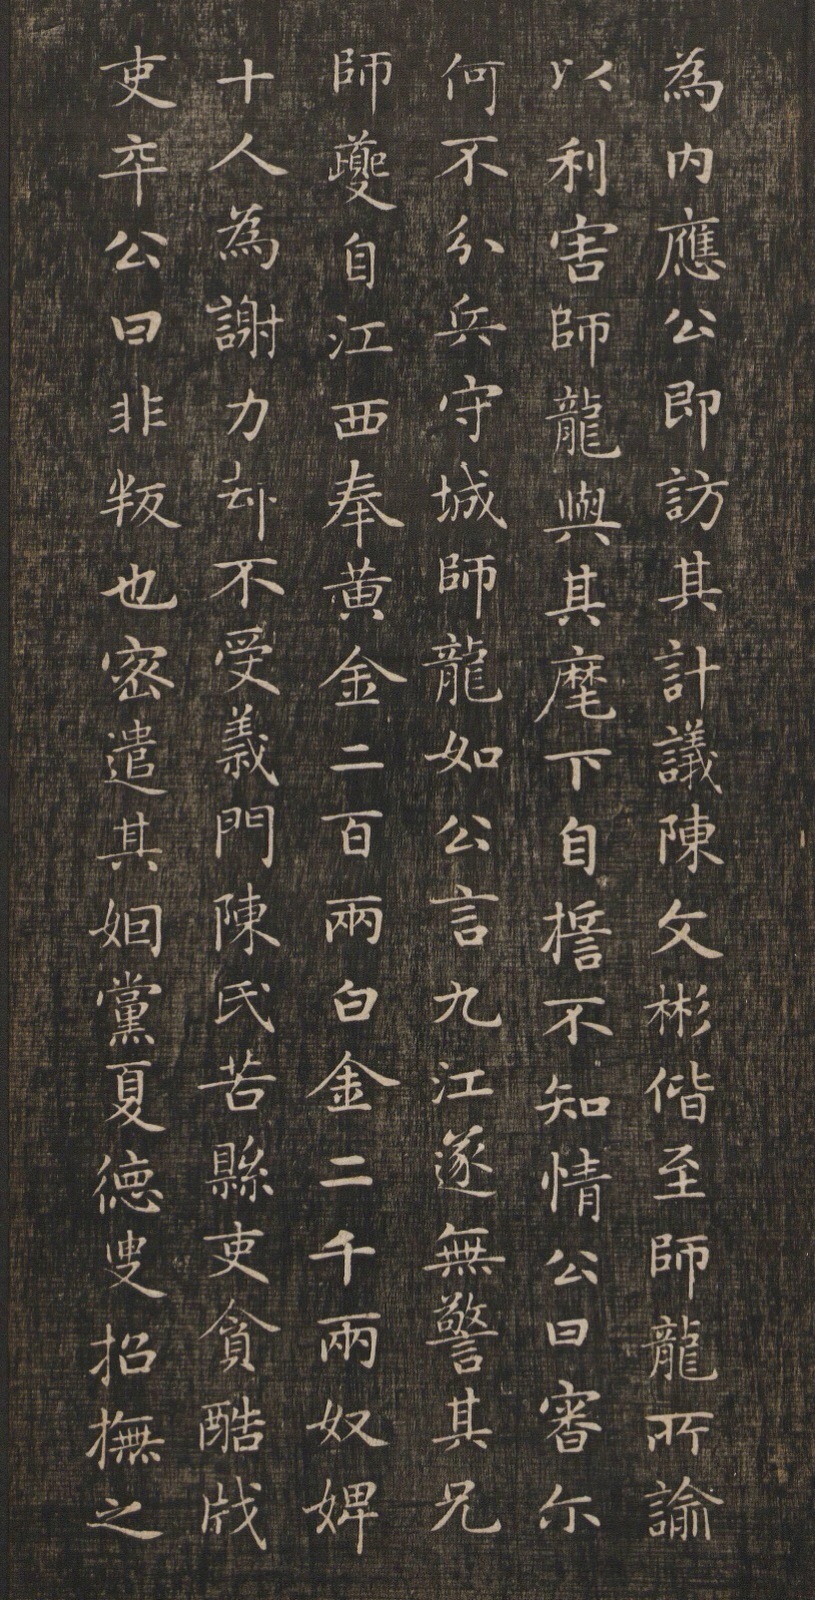 為内應公即訪其計議陳文彬偕至師龍所諭
以利害師龍與其麾下自擔不知情公曰審尒
何不分兵守城師龍如公言九江遂無警其兄
師夔自江西奉黄金二百兩白金二千兩奴婢
十人為謝力却不受義門陳氏苦縣吏貪酷戕
吏卒公曰非叛也宻遣其姻黨夏徳叟招撫之